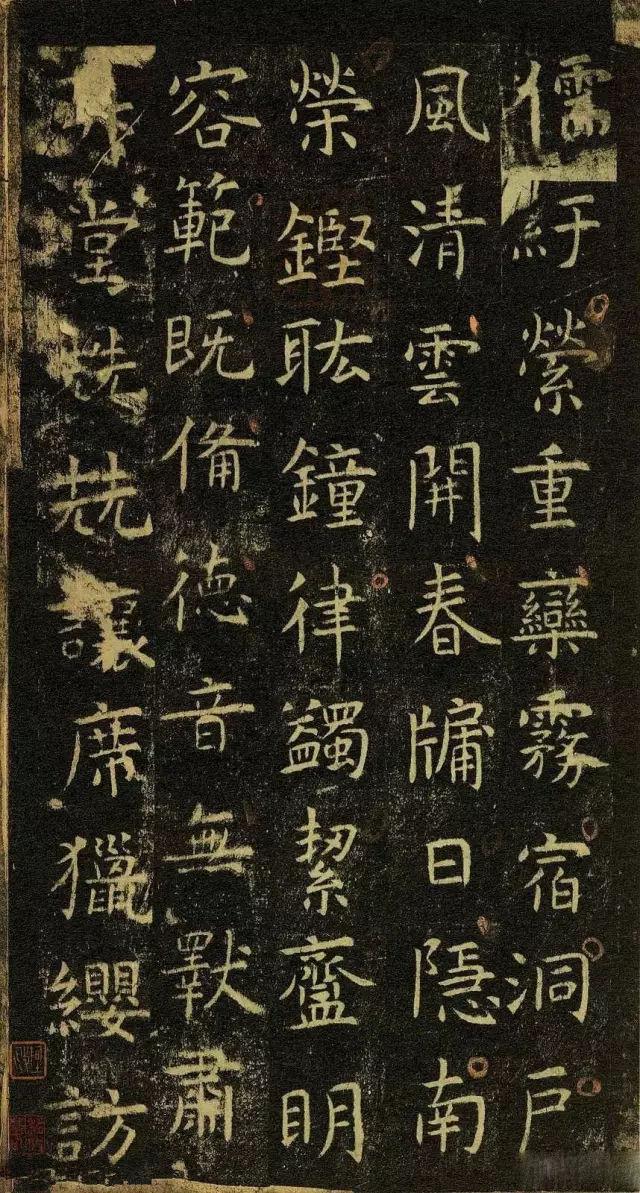 儒紆縈重欒霧宿洞戶
風清雲開春牖日隱南
榮鏗耾鐘律蠲絜齍明
容範既備德音無斁肅
堂兟兟讓席獵纓訪